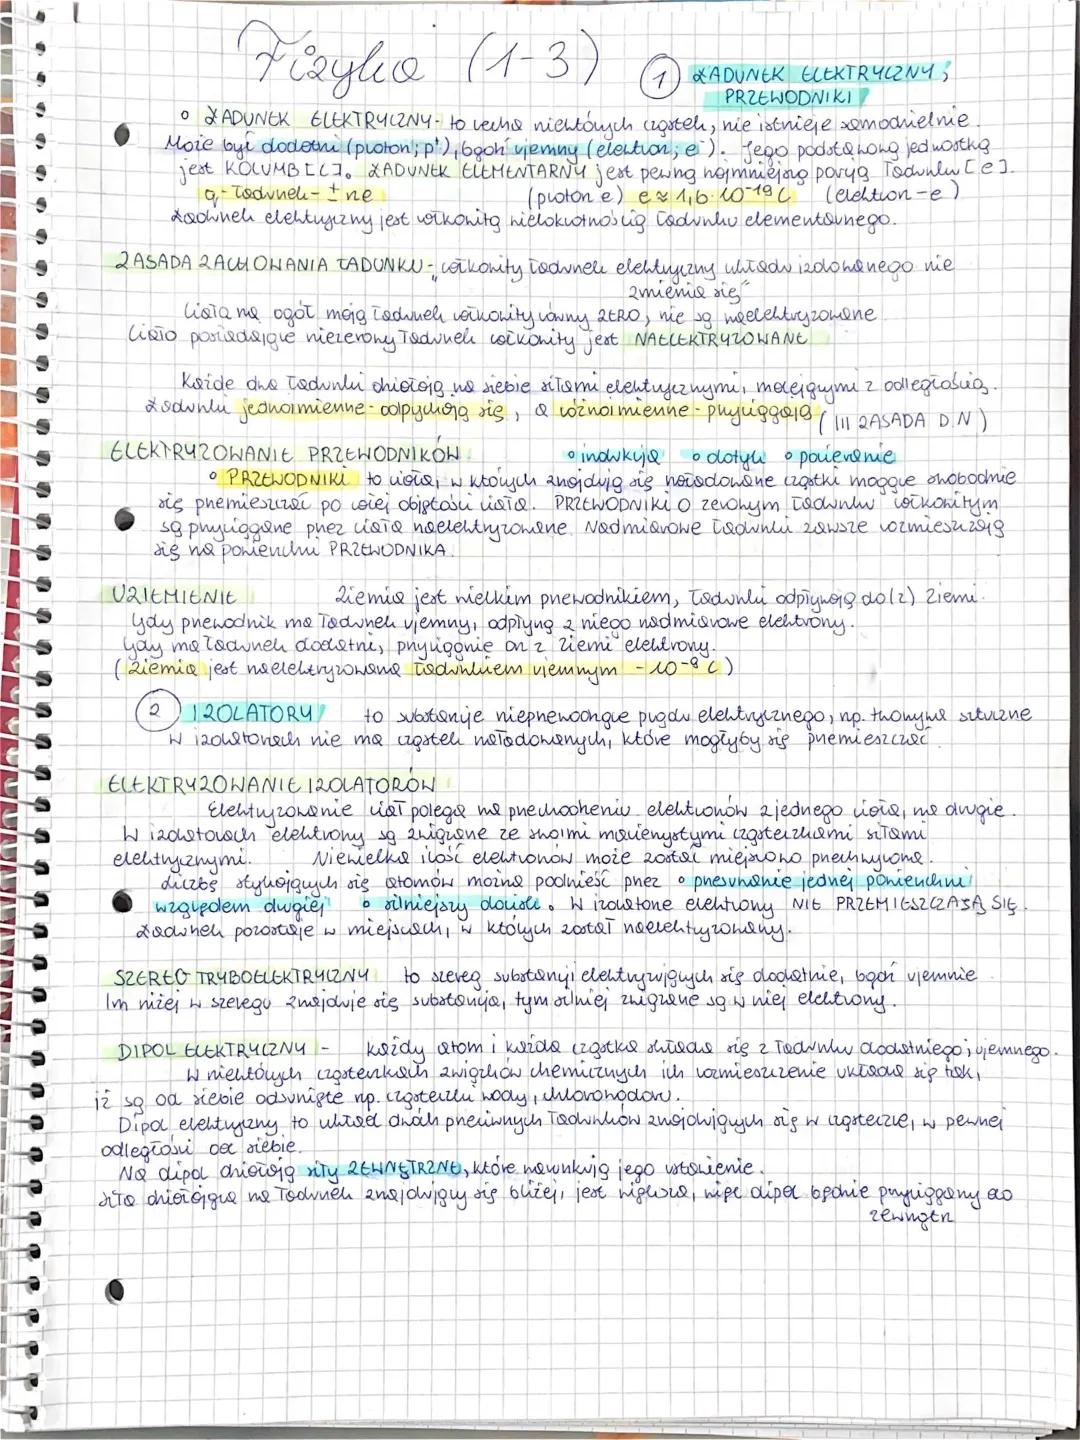 Fizyka (1-3)
1 ŁADUNEK ELEKTRYCZNY;
PRZEWODNIKI
ŁADUNEK ELEKTRYCZNY - to cecha niektórych cząstek, nie istnieje samodzielnie.
Może być dodatni (proton; p⁺), bądź ujemny (elektron; e⁻). Jego podstawową jednostką
jest KOLUMB [C]. ŁADUNEK ELEMENTARNY jest pewną najmniejszą porcją ładunku [e].
q - ładunek - ± ne (proton e) e ≈ 1,6·10⁻¹⁹ C (elektron -e)
Ładunek elektryczny jest całkowitą wielokrotnością ładunku elementarnego.
ZASADA ZACHOWANIA ŁADUNKU - "całkowity ładunek elektryczny układu izolowanego nie
zmienia się"
Ciała na ogół mają ładunek całkowity równy ZERO, nie są naelektryzowane
Ciało posiadające niezerowy ładunek całkowity jest NAELEKTRYZOWANE
Każde dwa ładunki działają na siebie siłami elektrycznymi, malejącymi z odległością.
Ładunki jednoimienne - odpychają się, a różnoimienne - przyciągają (III ZASADA D.N)
ELEKTRYZOWANIE PRZEWODNIKÓW. • indukcja • dotyk • pocieranie
• PRZEWODNIKI to ciała, w których znajdują się naładowane cząstki mogące swobodnie
się przemieszczać po całej objętości ciała. PRZEWODNIKI O zerowym ładunku całkowitym
są przyciągane przez ciała naelektryzowane. Nadmiarowe ładunki zawsze rozmieszczają
się na powierzchni PRZEWODNIKA.
UZIEMIENIE Ziemia jest wielkim przewodnikiem, ładunki odpływają do(z) Ziemi.
Gdy przewodnik ma ładunek ujemny, odpłyną z niego nadmiarowe elektrony.
Gdy ma ładunek dodatni, przyciągnie on z ziemi elektrony.
(Ziemia jest naelektryzowana ładunkiem ujemnym -10⁻⁹ C)
2 IZOLATORY to substancje nieprzewodzące prądu elektrycznego, np. tworzywa sztuczne
W izolatorach nie ma cząstek naładowanych, które mogłyby się przemieszczać.
ELEKTRYZOWANIE IZOLATORÓW
Elektryzowanie ciał polega na przechodzeniu elektronów z jednego ciała, na drugie.
W izolatorach elektrony są związane ze swoimi macierzystymi cząsteczkami siłami
elektrycznymi. Niewielka ilość elektronów może zostać miejscowo przechwycona.
Liczbę stykających się atomów można podnieść przez • przesuwanie jednej powierzchni
względem drugiej • silniejszy docisk. W izolatorze elektrony NIE PRZEMIESZCZAJĄ SIĘ.
Ładunek pozostaje w miejscach, w których został naelektryzowany.
SZEREG TRYBOELEKTRYCZNY to szereg substancji elektryzujących się dodatnie, bądź ujemnie
Im niżej w szeregu znajduje się substancja, tym silniej związane są w niej elektrony.
DIPOL ELEKTRYCZNY - każdy atom i każda cząstka składa się z ładunku dodatniego i ujemnego.
W niektórych cząsteczkach związków chemicznych ich rozmieszczenie układa się tak,
iż są od siebie odsunięte np. cząsteczki wody, chlorowodoru.
Dipol elektryczny to układ dwóch przeciwnych ładunków znajdujących się w cząsteczce, w pewnej
odległości od siebie.
Na dipol działają siły ZEWNĘTRZNE, które warunkują jego ustawienie.
Siła działająca na ładunek znajdujący się bliżej, jest większa, więc dipol będzie przyciągany do
zewnątrz